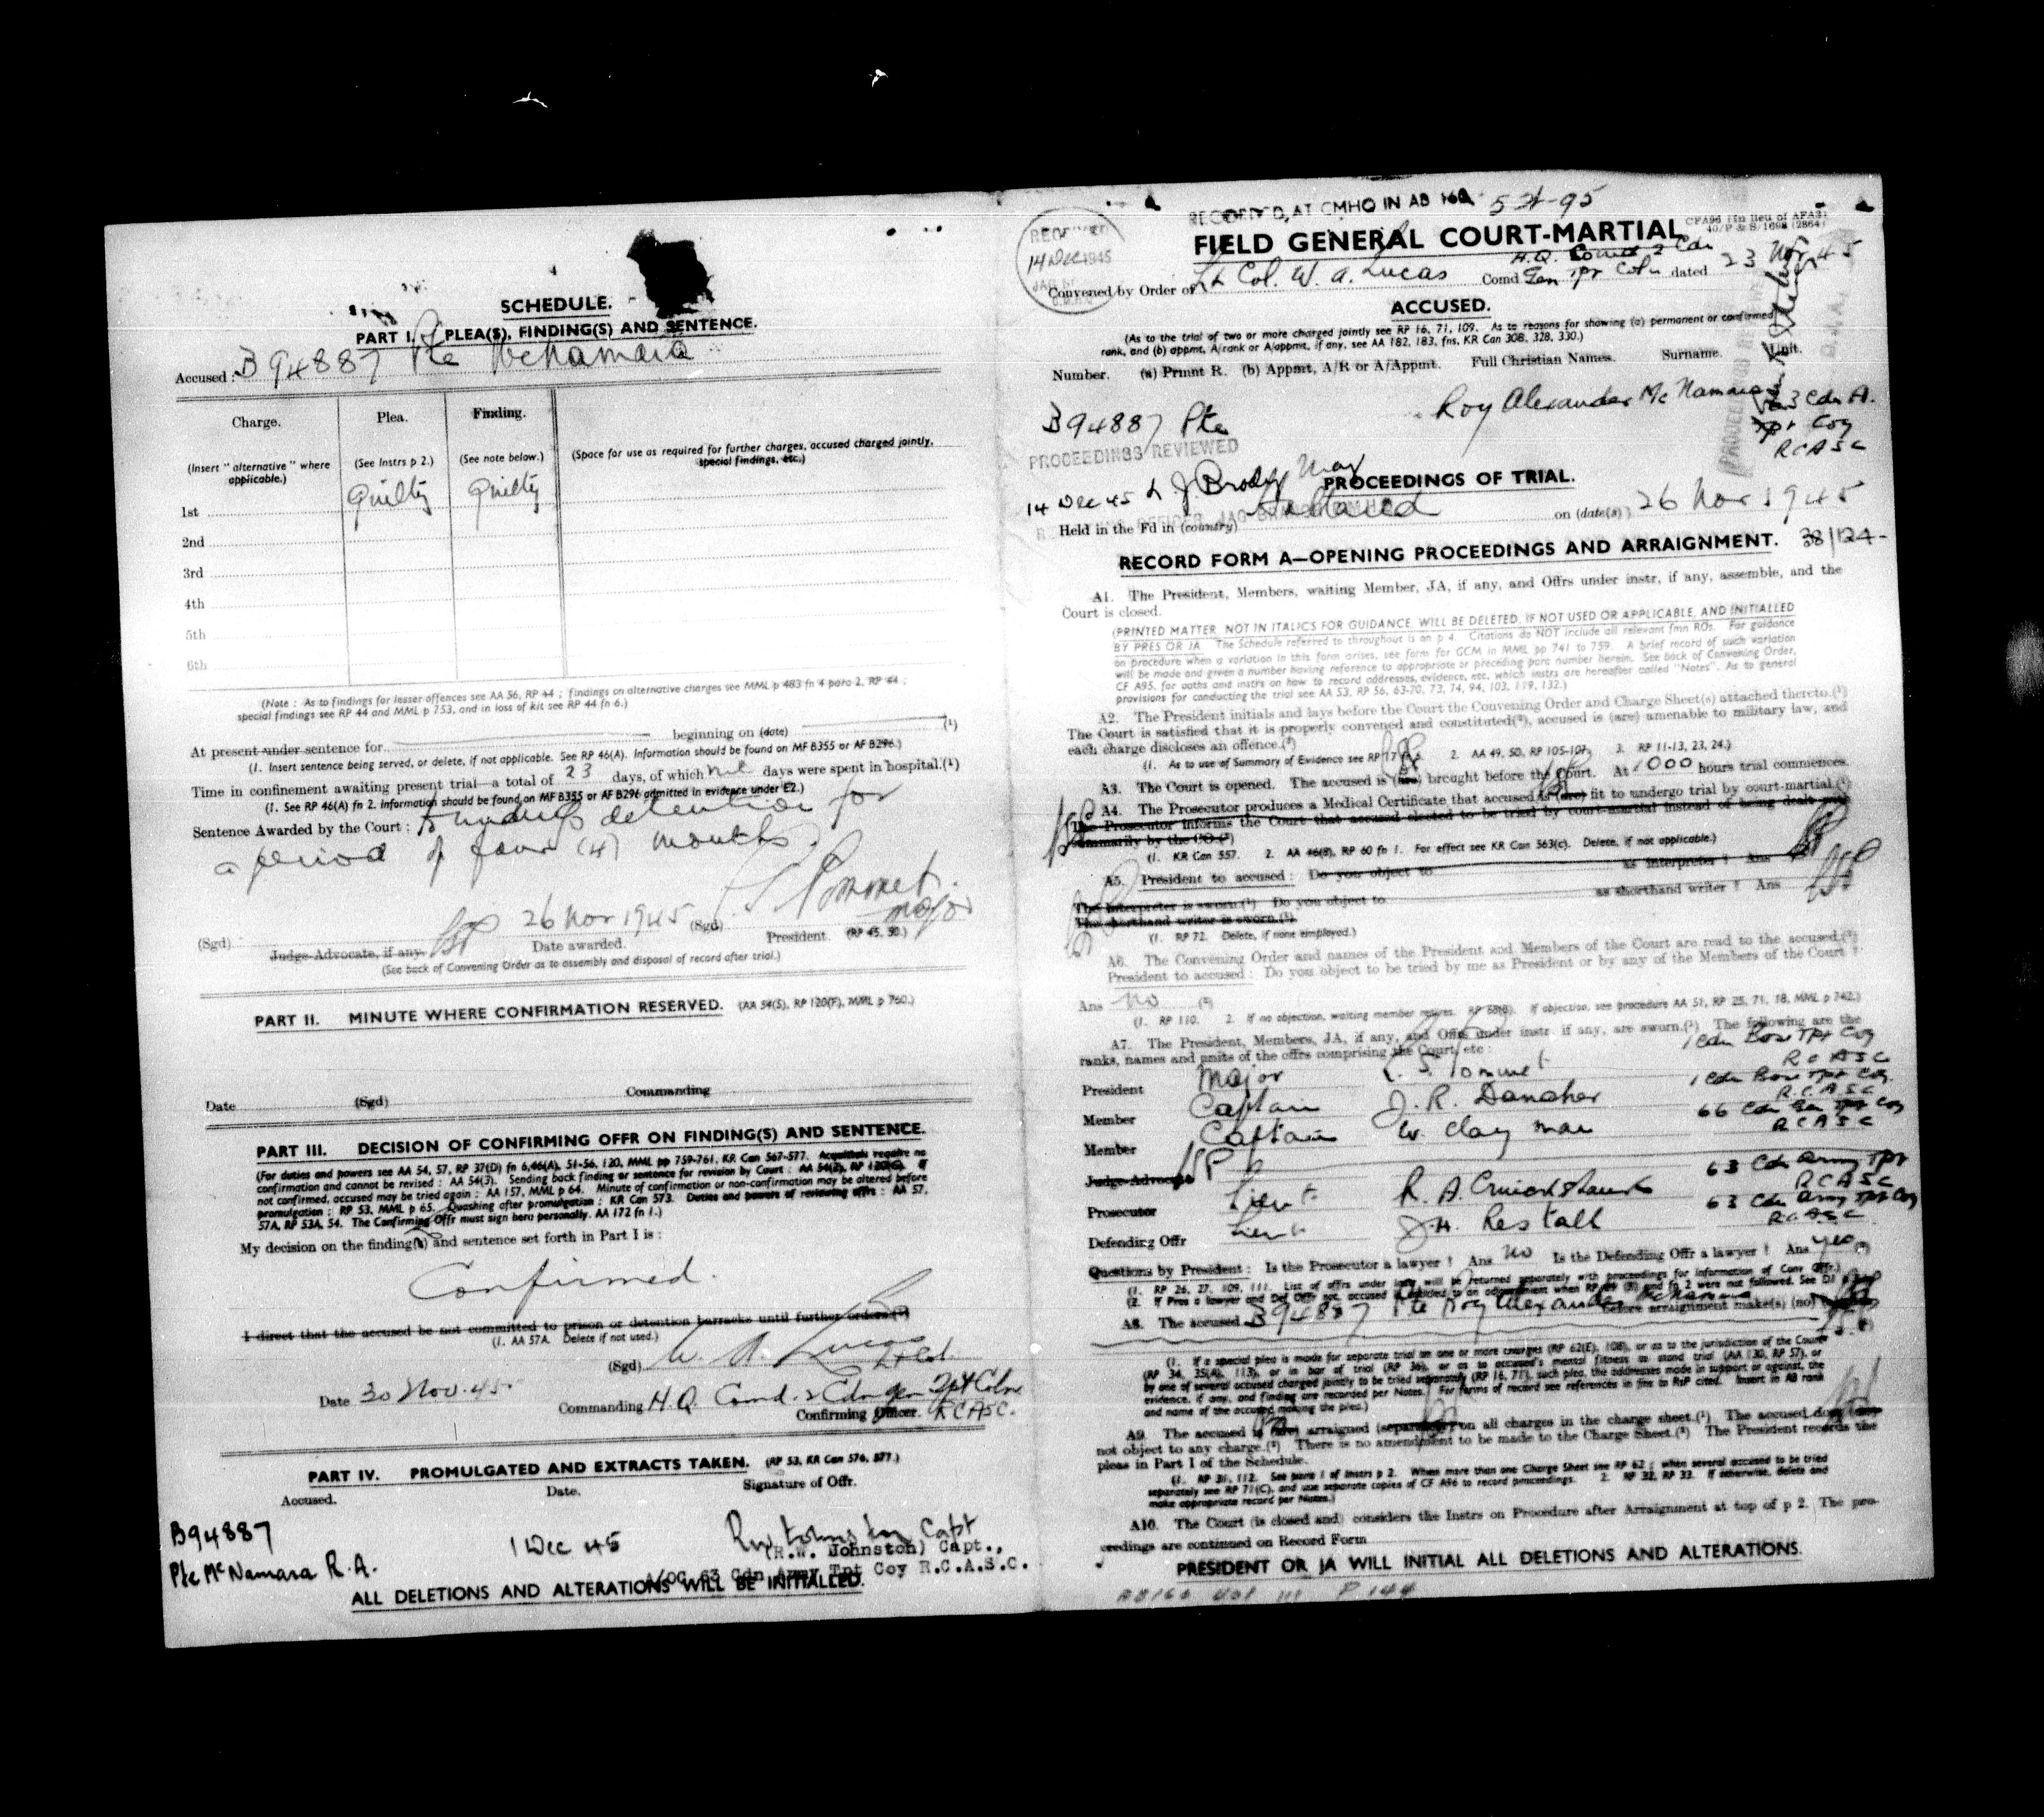 SCHEDULE.
PART I. PLEA(S), FINDING(S) AND SENTENCE.
Accused: B94887 Pte McNamara
Charge. Plea. Finding.
(Insert "alternative" where applicable.) (See Instrs p 2.) (See note below.) (Space for use as required for further charges, accused charged jointly, special findings, etc.)
1st Guilty Guilty
2nd
3rd
4th
5th
6th
(Note : As to findings for lesser offences see AA 56, RP 44 ; findings on alternative charges see MML p 483 fn 4 para 2, RP 44 ;
special findings see RP 44 and MML p 753, and in loss of kit see RP 44 fn 6.)
At present under sentence for beginning on (date) (¹)
(1. Insert sentence being served, or delete, if not applicable. See RP 46(A). Information should be found on MF B355 or AF B296.)
Time in confinement awaiting present trial—a total of 23 days, of which nil days were spent in hospital.(¹)
(1. See RP 46(A) fn 2. Information should be found on MF B355 or AF B296 admitted in evidence under E2.)
Sentence Awarded by the Court : To undergo detention for
a period of four (4) months.
(Sgd) 26 Nov 1945 (Sgd) Major
Judge-Advocate, if any. Date awarded. President. (RP 45, 50.)
(See back of Convening Order as to assembly and disposal of record after trial.)
PART II. MINUTE WHERE CONFIRMATION RESERVED. (AA 54(5), RP 120(F), MML p 760.)
Date (Sgd) Commanding
PART III. DECISION OF CONFIRMING OFFR ON FINDING(S) AND SENTENCE.
(For duties and powers see AA 54, 57, RP 37(D) fn 6,46(A), 51-56, 120, MML pp 759-761, KR Can 567-577. Acquittals require no
confirmation and cannot be revised : AA 54(3). Sending back finding or sentence for revision by Court : AA 54(2), RP 120(G). If
not confirmed, accused may be tried again : AA 157, MML p 64. Minute of confirmation or non-confirmation may be altered before
promulgation : RP 53, MML p 65. Quashing after promulgation : KR Can 573. Duties and powers of reviewing offrs : AA 57,
57A, RP 53A, 54. The Confirming Offr must sign here personally. AA 172 fn 1.)
My decision on the finding(s) and sentence set forth in Part I is :
Confirmed.
I direct that the accused be not committed to prison or detention barracks until further orders.(¹)
(1. AA 57A. Delete if not used.)
(Sgd) W. A. Lucas Lt Col.
Date 30 Nov. 45. Commanding H.Q. Comd. 2 Cdn Gen Tpt Coln
Confirming Officer. RCASC.
PART IV. PROMULGATED AND EXTRACTS TAKEN. (RP 53, KR Can 576, 577.)
Accused. Date. Signature of Offr.
B94887 1 Dec 45 R W Johnston Capt
Pte McNamara R.A. (R.W. Johnston) Capt.,
A/OC 63 Cdn Army Tpt Coy R.C.A.S.C.
ALL DELETIONS AND ALTERATIONS WILL BE INITIALLED.
RECORDED AT CMHQ IN AB 160
CFA96 (In lieu of AFA3)
40/P & S/1698 (2864)
RECEIVED
14 Dec 1945
FIELD GENERAL COURT-MARTIAL
Convened by Order of Lt Col. W. A. Lucas Comd H.Q. Comd 2 Cdn Gen Tpt Coln dated 23 Nov 45
ACCUSED.
(As to the trial of two or more charged jointly see RP 16, 71, 109. As to reasons for showing (a) permanent or confirmed
rank, and (b) appmt, A/rank or A/appmt, if any, see AA 182, 183, fns, KR Can 308, 328, 330.)
Number. (a) Prmnt R. (b) Appmt, A/R or A/Appmt. Full Christian Names. Surname. Unit.
B94887 Pte Roy Alexander McNamara 63 Cdn A.
Tpt Coy
RCASC
PROCEEDINGS REVIEWED
14 Dec 45 L J Brody Maj
PROCEEDINGS OF TRIAL.
Held in the Fd in (country) Holland on (date(s)) 26 Nov 1945
RECORD FORM A—OPENING PROCEEDINGS AND ARRAIGNMENT. 38/124-
A1. The President, Members, waiting Member, JA, if any, and Offrs under instr, if any, assemble, and the
Court is closed.
(PRINTED MATTER, NOT IN ITALICS FOR GUIDANCE, WILL BE DELETED, IF NOT USED OR APPLICABLE, AND INITIALLED
BY PRES OR JA. The Schedule referred to throughout is on p 4. Citations do NOT include all relevant fmn ROs. For guidance
on procedure when a variation in this form arises, see form for GCM in MML pp 741 to 759. A brief record of such variation
will be made and given a number having reference to appropriate or preceding para number herein. See back of Convening Order,
CF A95, for oaths and instrs on how to record addresses, evidence, etc, which instrs are hereafter called "Notes". As to general
provisions for conducting the trial see AA 53, RP 56, 63-70, 73, 74, 94, 103, 119, 132.)
A2. The President initials and lays before the Court the Convening Order and Charge Sheet(s) attached thereto.(¹)
The Court is satisfied that it is properly convened and constituted(²), accused is (are) amenable to military law, and
each charge discloses an offence.(³)
(1. As to use of Summary of Evidence see RP 17 fn 6. 2. AA 49, 50, RP 105-107. 3. RP 11-13, 23, 24.)
A3. The Court is opened. The accused is (are) brought before the Court. At 1000 hours trial commences.
A4. The Prosecutor produces a Medical Certificate that accused is (are) fit to undergo trial by court-martial.(¹)
The Prosecutor informs the Court that accused elected to be tried by court-martial instead of being dealt with
summarily by the CO.(²)
(1. KR Can 557. 2. AA 46(8), RP 60 fn 1. For effect see KR Can 563(c). Delete, if not applicable.)
A5. President to accused : Do you object to as interpreter ? Ans
The interpreter is sworn.(¹) Do you object to as shorthand writer ? Ans
The shorthand writer is sworn.(¹)
(1. RP 72. Delete, if none employed.)
A6. The Convening Order and names of the President and Members of the Court are read to the accused.(¹)
President to accused : Do you object to be tried by me as President or by any of the Members of the Court ?
Ans No (²)
(1. RP 110. 2. If no objection, waiting member retires. RP 68(B). If objection, see procedure AA 51, RP 25, 71, 18, MML p 742.)
A7. The President, Members, JA, if any, and Offrs under instr. if any, are sworn.(¹) The following are the
ranks, names and units of the offrs comprising the Court, etc :
President Major 1 Cdn Tpt Coy RCASC
Member Captain J. R. Danaher 1 Cdn Tpt Coy R.C.A.S.C
Member Captain W. Clayman 66 Cdn Gen Tpt Coy RCASC
Judge-Advocate
Prosecutor Lieut R. A. Cruickshank 63 Cdn Army Tpt RCASC
Defending Offr Lieut J. H. Restall 63 Cdn Army Tpt Coy RCASC
Questions by President : Is the Prosecutor a lawyer ? Ans No Is the Defending Offr a lawyer ? Ans Yes (²)
(1. RP 26, 27, 109, 111. List of offrs under instr will be returned separately with proceedings for information of Conv Offr.)
A8. The accused B94887 Pte Roy Alexander McNamara before arraignment make(s) (no)
(1. If a special plea is made for separate trial on one or more charges (RP 62(E), 108), or as to the jurisdiction of the Court
(RP 34, 35(A), 113), or in bar of trial (RP 36), or as to accused's mental fitness to stand trial (AA 130, RP 57), or
by one of several accused charged jointly to be tried separately (RP 16, 71), such plea, the addresses made in support or against, the
evidence, if any, and finding are recorded per Notes. For forms of record see references in fns to RsP cited. Insert in A8 rank
and name of the accused making the plea.)
A9. The accused is (are) arraigned (separately) on all charges in the charge sheet.(¹) The accused does
not object to any charge.(²) There is no amendment to be made to the Charge Sheet.(²) The President records the
pleas in Part I of the Schedule.
(1. RP 31, 112. See para 1 of Instrs p 2. When more than one Charge Sheet see RP 62 ; when several accused to be tried
separately see RP 71(C), and use separate copies of CF A96 to record proceedings. 2. RP 32, RP 33. If otherwise, delete and
make appropriate record per Notes.)
A10. The Court (is closed and) considers the Instrs on Procedure after Arraignment at top of p 2. The pro-
ceedings are continued on Record Form
PRESIDENT OR JA WILL INITIAL ALL DELETIONS AND ALTERATIONS.
AB160 Vol III P 144